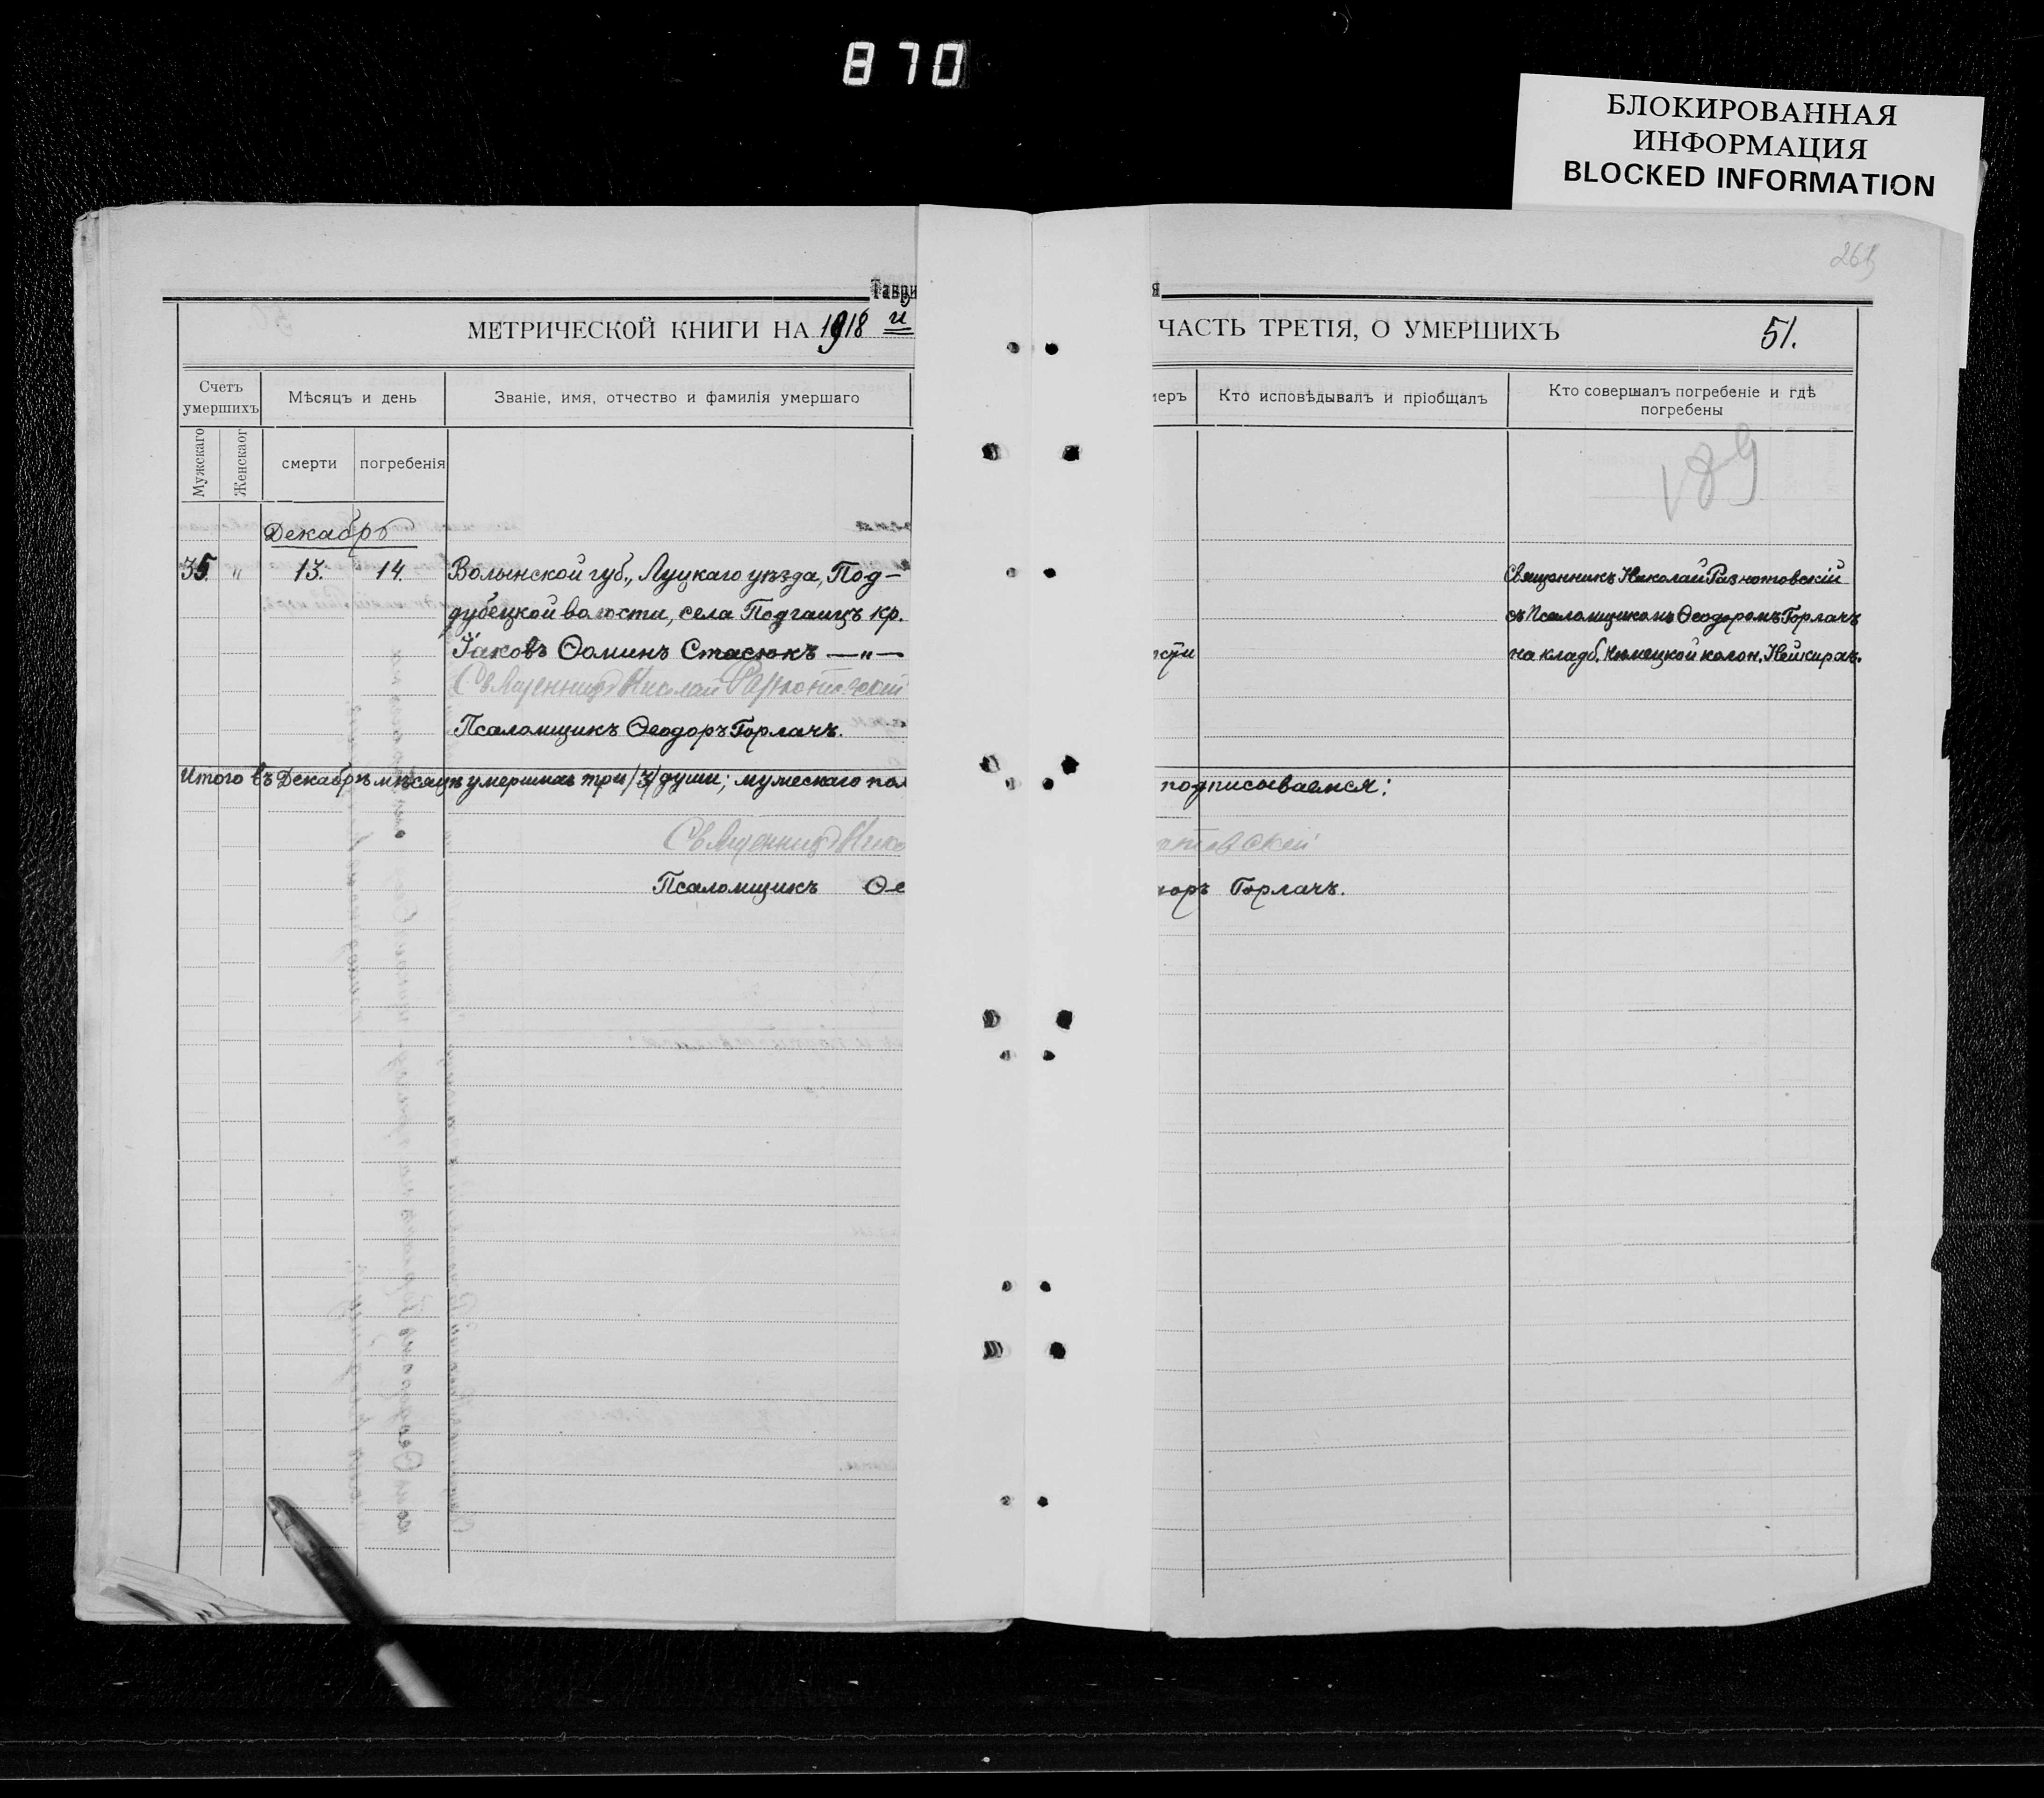 870
БЛОКИРОВАННАЯ
ИНФОРМАЦИЯ
BLOCKED INFORMATION
Таври
я
МЕТРИЧЕСКОЙ КНИГИ НА 1918 й
ЧАСТЬ ТРЕТІЯ, О УМЕРШИХЪ
51.
Счетъ умершихъ
Мѣсяцъ и день
Званіе, имя, отчество и фамилія умершаго
меръ
Кто исповѣдывалъ и пріобщалъ
Кто совершалъ погребеніе и гдѣ
погребены
Мужскаго
Женскаог
смерти
погребенія
189
Декабрь
35. " 13. 14. Волынской губ., Луцкаго уѣзда, Под-
дубецкой волости, села Подгаицъ кр.
Іаковъ Ѳоминъ Стасюкъ —"—
Священникъ Николай
Псаломщикъ Ѳеодоръ Горлачъ.
сти
Священникъ Николай
съ Псаломщикомъ Ѳеодоромъ Горлачъ
на кладб. Нѣмецкой колон. Нейкирхъ.
Итого въ Декабрѣ мѣсяцѣ умершихъ три /3/ души; мужескаго пол
подписываемся:
Священникъ Нико
товскій
Псаломщикъ Ѳе
доръ Горлачъ.